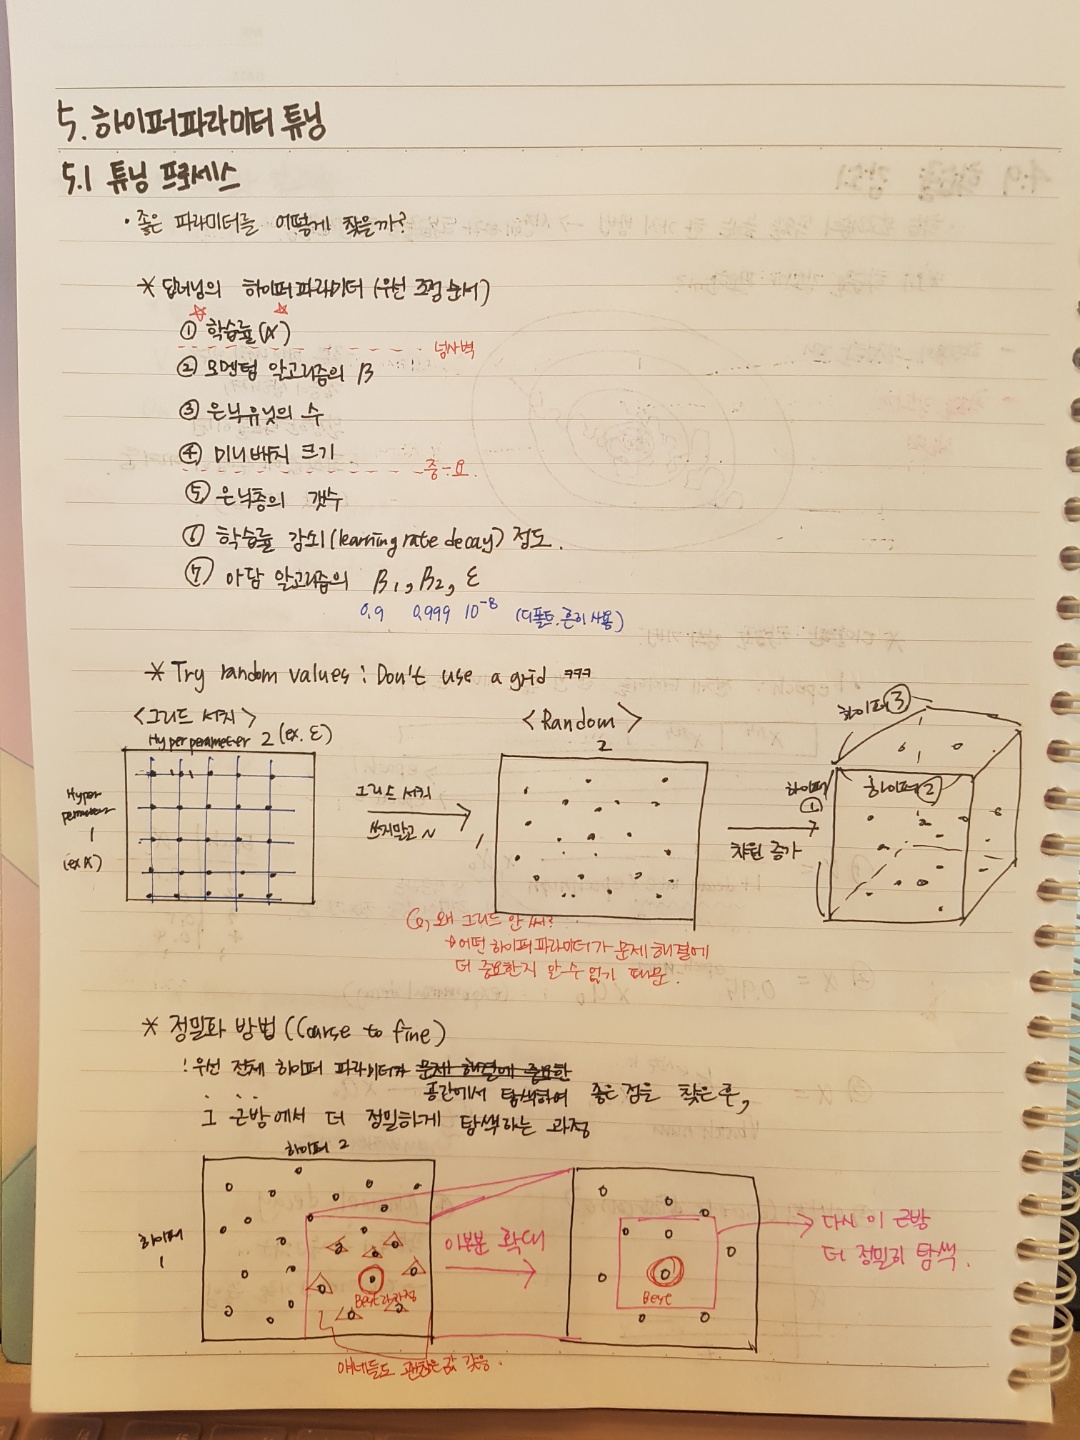 5. 하이퍼파라미터 튜닝
5.1 튜닝 프로세스
• 좋은 파라미터를 어떻게 찾을까?
* 딥러닝의 하이퍼파라미터 (우선 조정 순서)
① 학습률(α)
넘사벽
② 모멘텀 알고리즘의 β
③ 은닉유닛의 수
④ 미니배치 크기
중-요
⑤ 은닉층의 갯수
⑥ 학습률 감쇠(learning rate decay) 정도.
⑦ 아담 알고리즘의 β₁, β₂, ε
0.9 0.999 10⁻⁸ (디폴트. 흔히 사용)
* Try random values : Don't use a grid ㅋㅋㅋ
<그리드 서치>
Hyperperameter 2 (ex. ε)
Hyper
1
(ex α)
그리드 서치
쓰지말고 ~
<Random>
2
1
차원 증가
하이퍼 ③
하이퍼 ②
하이퍼 ①
Q, 왜 그리드 안써?
→ 어떤 하이퍼파라미터가 문제해결에
더 중요한지 알 수 없기 때문.
* 정밀화 방법 (Coarse to fine)
: 우선 전체 하이퍼 파라미터 문제 해결에 중요한
공간에서 탐색하여 좋은 점을 찾은 후,
그 근방에서 더 정밀하게 탐색하는 과정
하이퍼 2
하이퍼
1
Best
이부분 확대
Best
다시 이 근방
더 정밀히 탐색.
얘네들도 괜찮은 값 갖음.